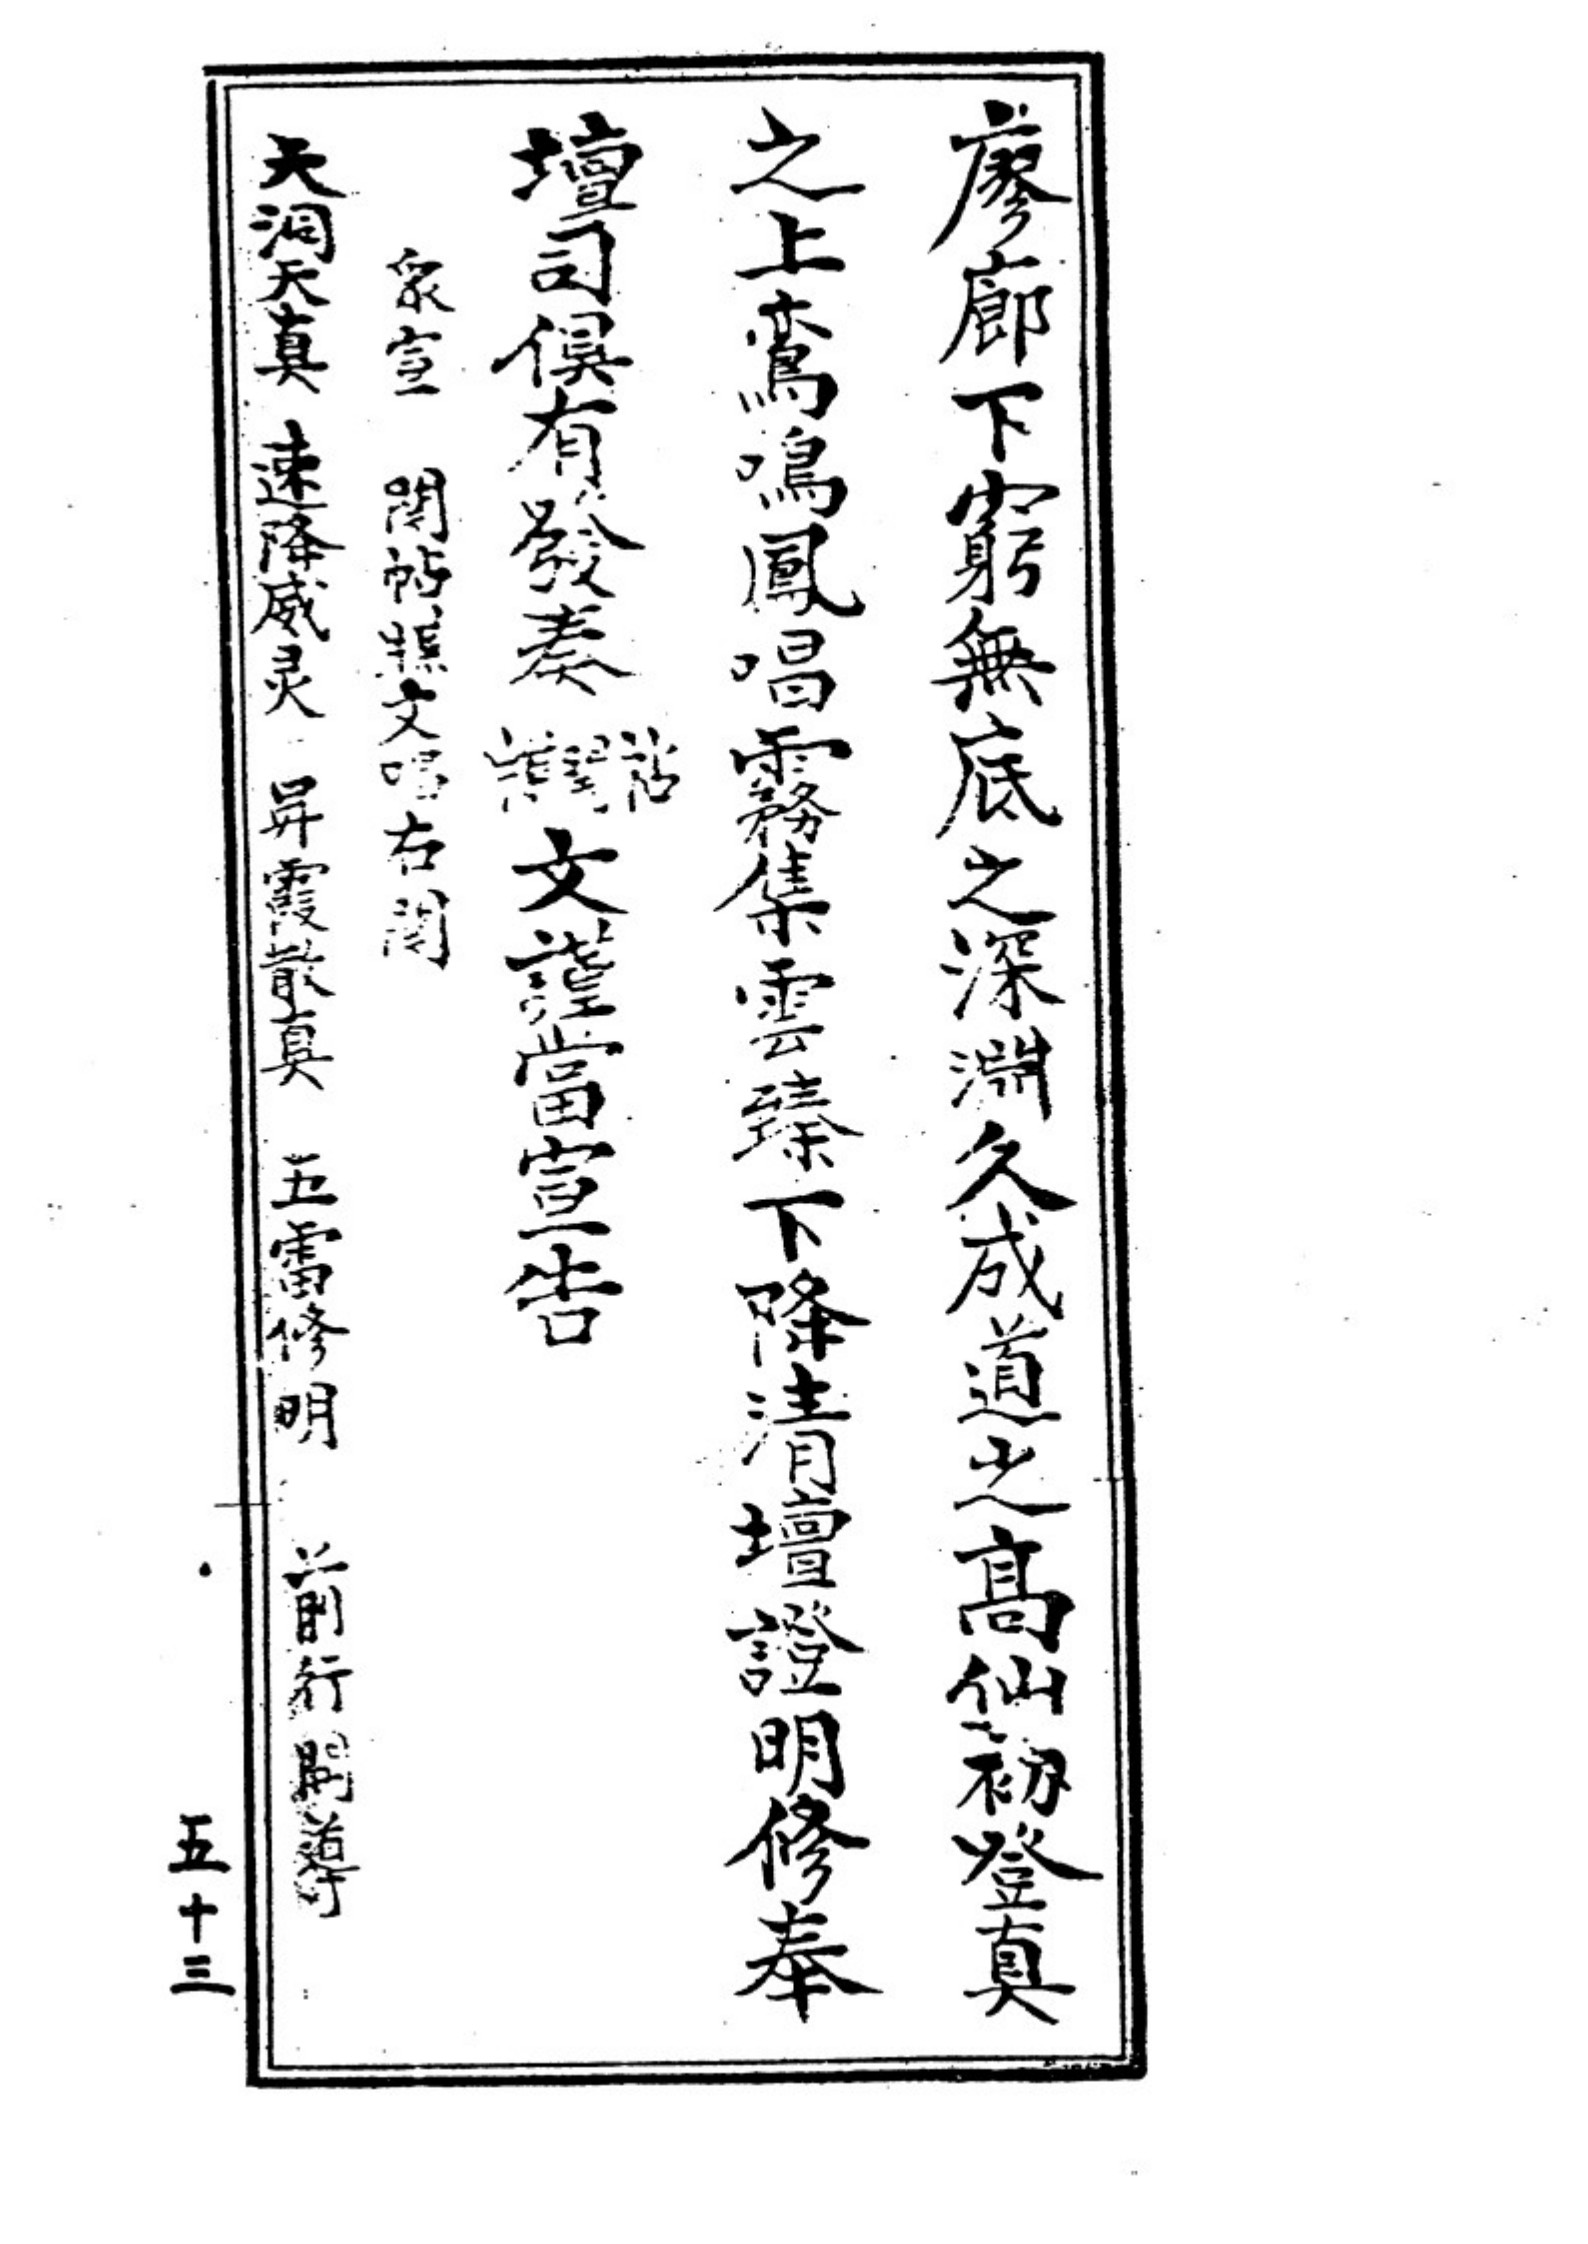 廖廊下窮無底之深淵久成道之高仙初登真
之上鸞鳴鳳唱霧集雲臻下降清壇證明修奉
壇司俱有發奏牒関帖文謹當宣告
衆宣 関帖牒文唱右関
天洞天真 速降威灵 昇霞散真 五雷修明 前行開導
五十三